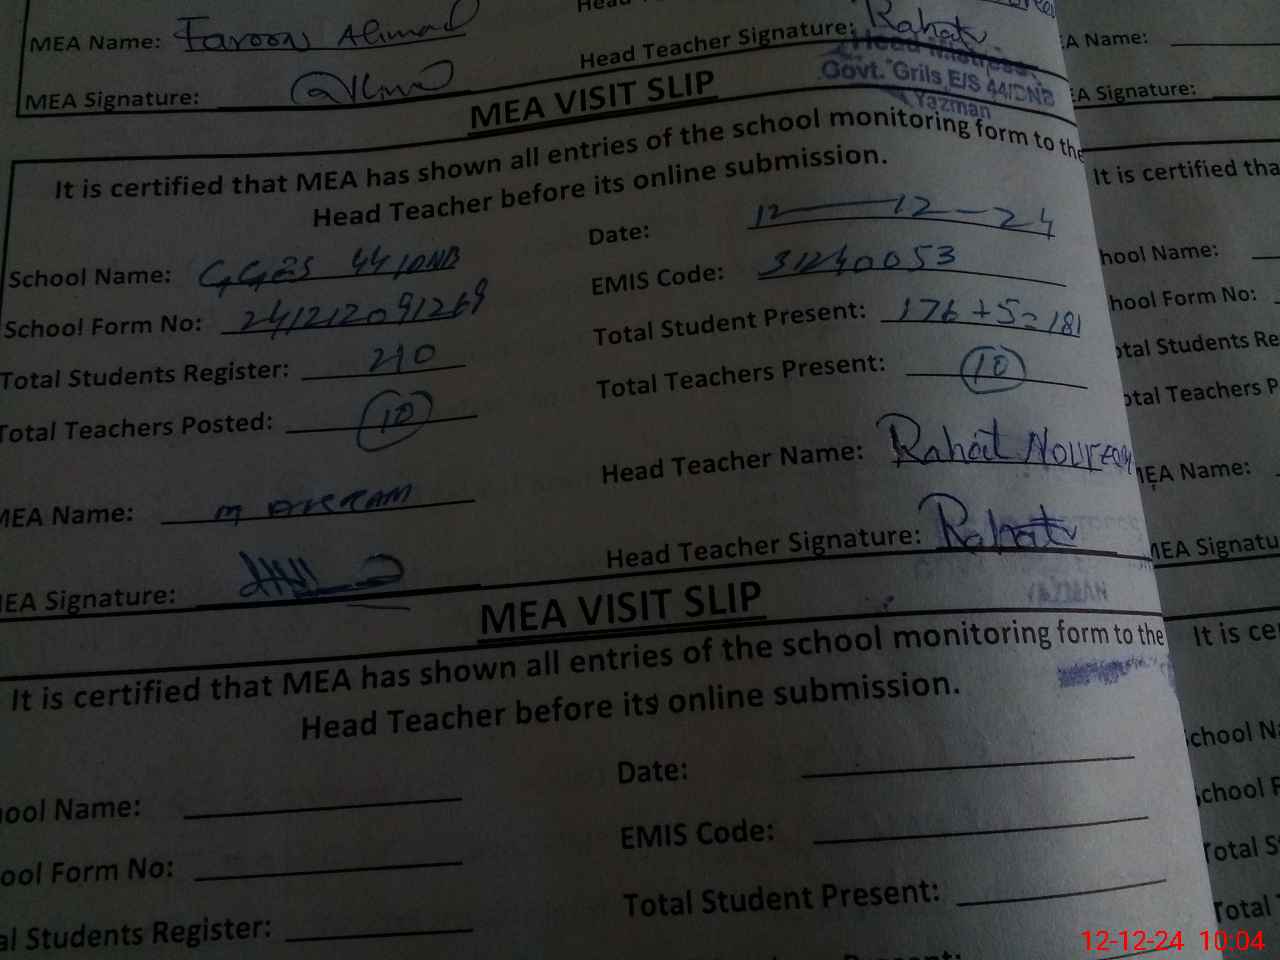 MEA Name: Faroon Ahmad
Head Teacher Signature: Rahat
MEA Signature:
Govt. Grils E/S 44/DNB
Yazman
MEA VISIT SLIP
It is certified that MEA has shown all entries of the school monitoring form to the
Head Teacher before its online submission.
Date: 12-12-24
School Name: GGES 44/DNB
EMIS Code: 31240053
School Form No: 241212091269
Total Student Present: 176+5=181
Total Students Register: 210
Total Teachers Present: 10
Total Teachers Posted: 10
Head Teacher Name: Rahat
MEA Name: M
Head Teacher Signature: Rahat
MEA Signature:
YAZMAN
MEA VISIT SLIP
It is certified that MEA has shown all entries of the school monitoring form to the
Head Teacher before its online submission.
Date:
ool Name:
EMIS Code:
ool Form No:
Total Student Present:
al Students Register:
A Name:
EA Signature:
It is certified tha
hool Name:
hool Form No:
otal Students Re
otal Teachers P
MEA Name:
MEA Signatu
It is ce
chool N
chool F
Total S
Total
12-12-24 10:04